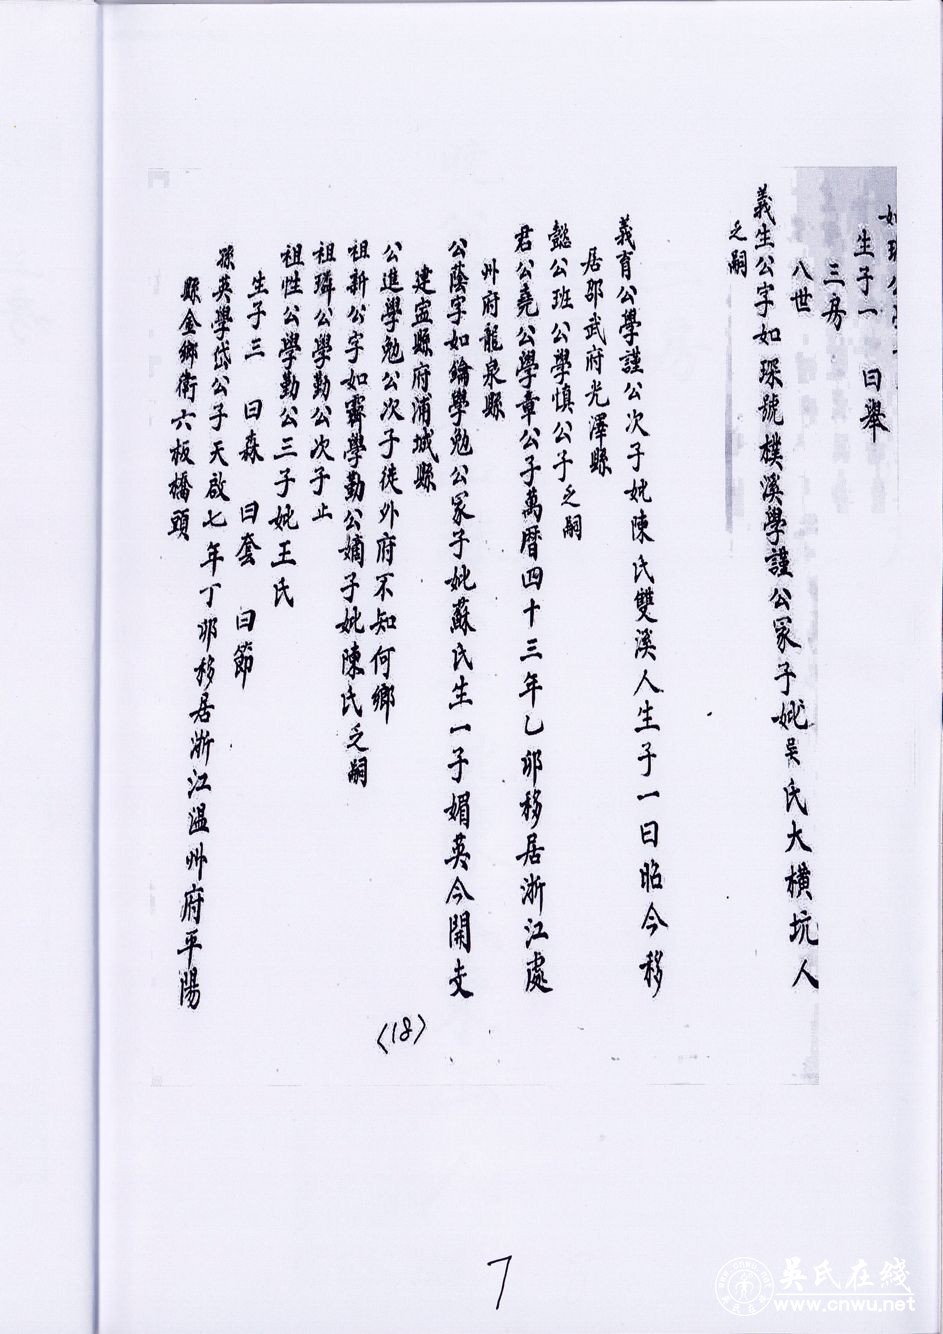 生子一 曰舉
三房
八世
義生公字如琛號樸溪學謹公冢子妣吳氏大橫坑人
乏嗣
義育公學謹公次子妣陳氏雙溪人生子一曰昭今移
居邵武府光澤縣
懿公班公學慎公子乏嗣
君公堯公學章公子萬曆四十三年乙卯移居浙江處
州府龍泉縣
公蔭字如綸學勉公冢子妣蘇氏生一子媚英今開支
建寧縣府浦城縣
公進學勉公次子徙外府不知何鄉
祖新公字如霽學勤公嫡子妣陳氏乏嗣
祖璘公學勤公次子止
祖性公學勤公三子妣王氏
生子三 曰森 曰套 曰節
孫英學岱公子天啟七年丁卯移居浙江溫州府平陽
縣金鄉衛六板橋頭
〈18〉
7
吴氏在线
www.cnwu.net